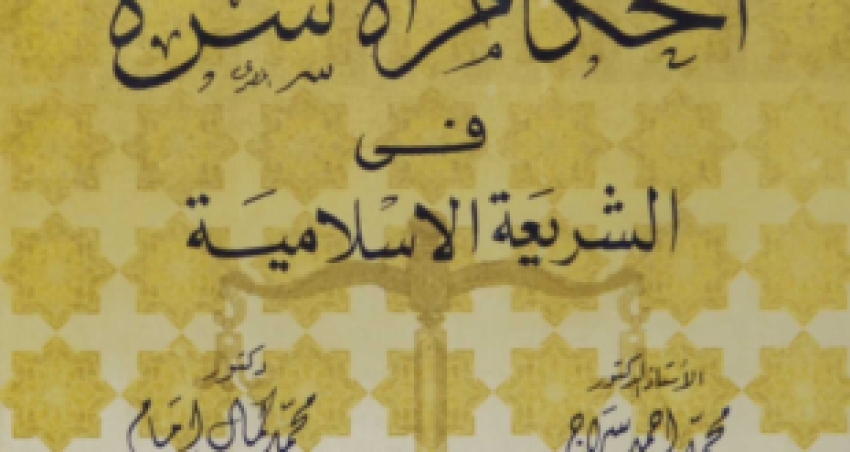 أحكام الأسرة
فى
الشريعة الإسلامية
الأستاذ الدكتور
محمد أحمد سراج
دكتور
محمد كمال إمام